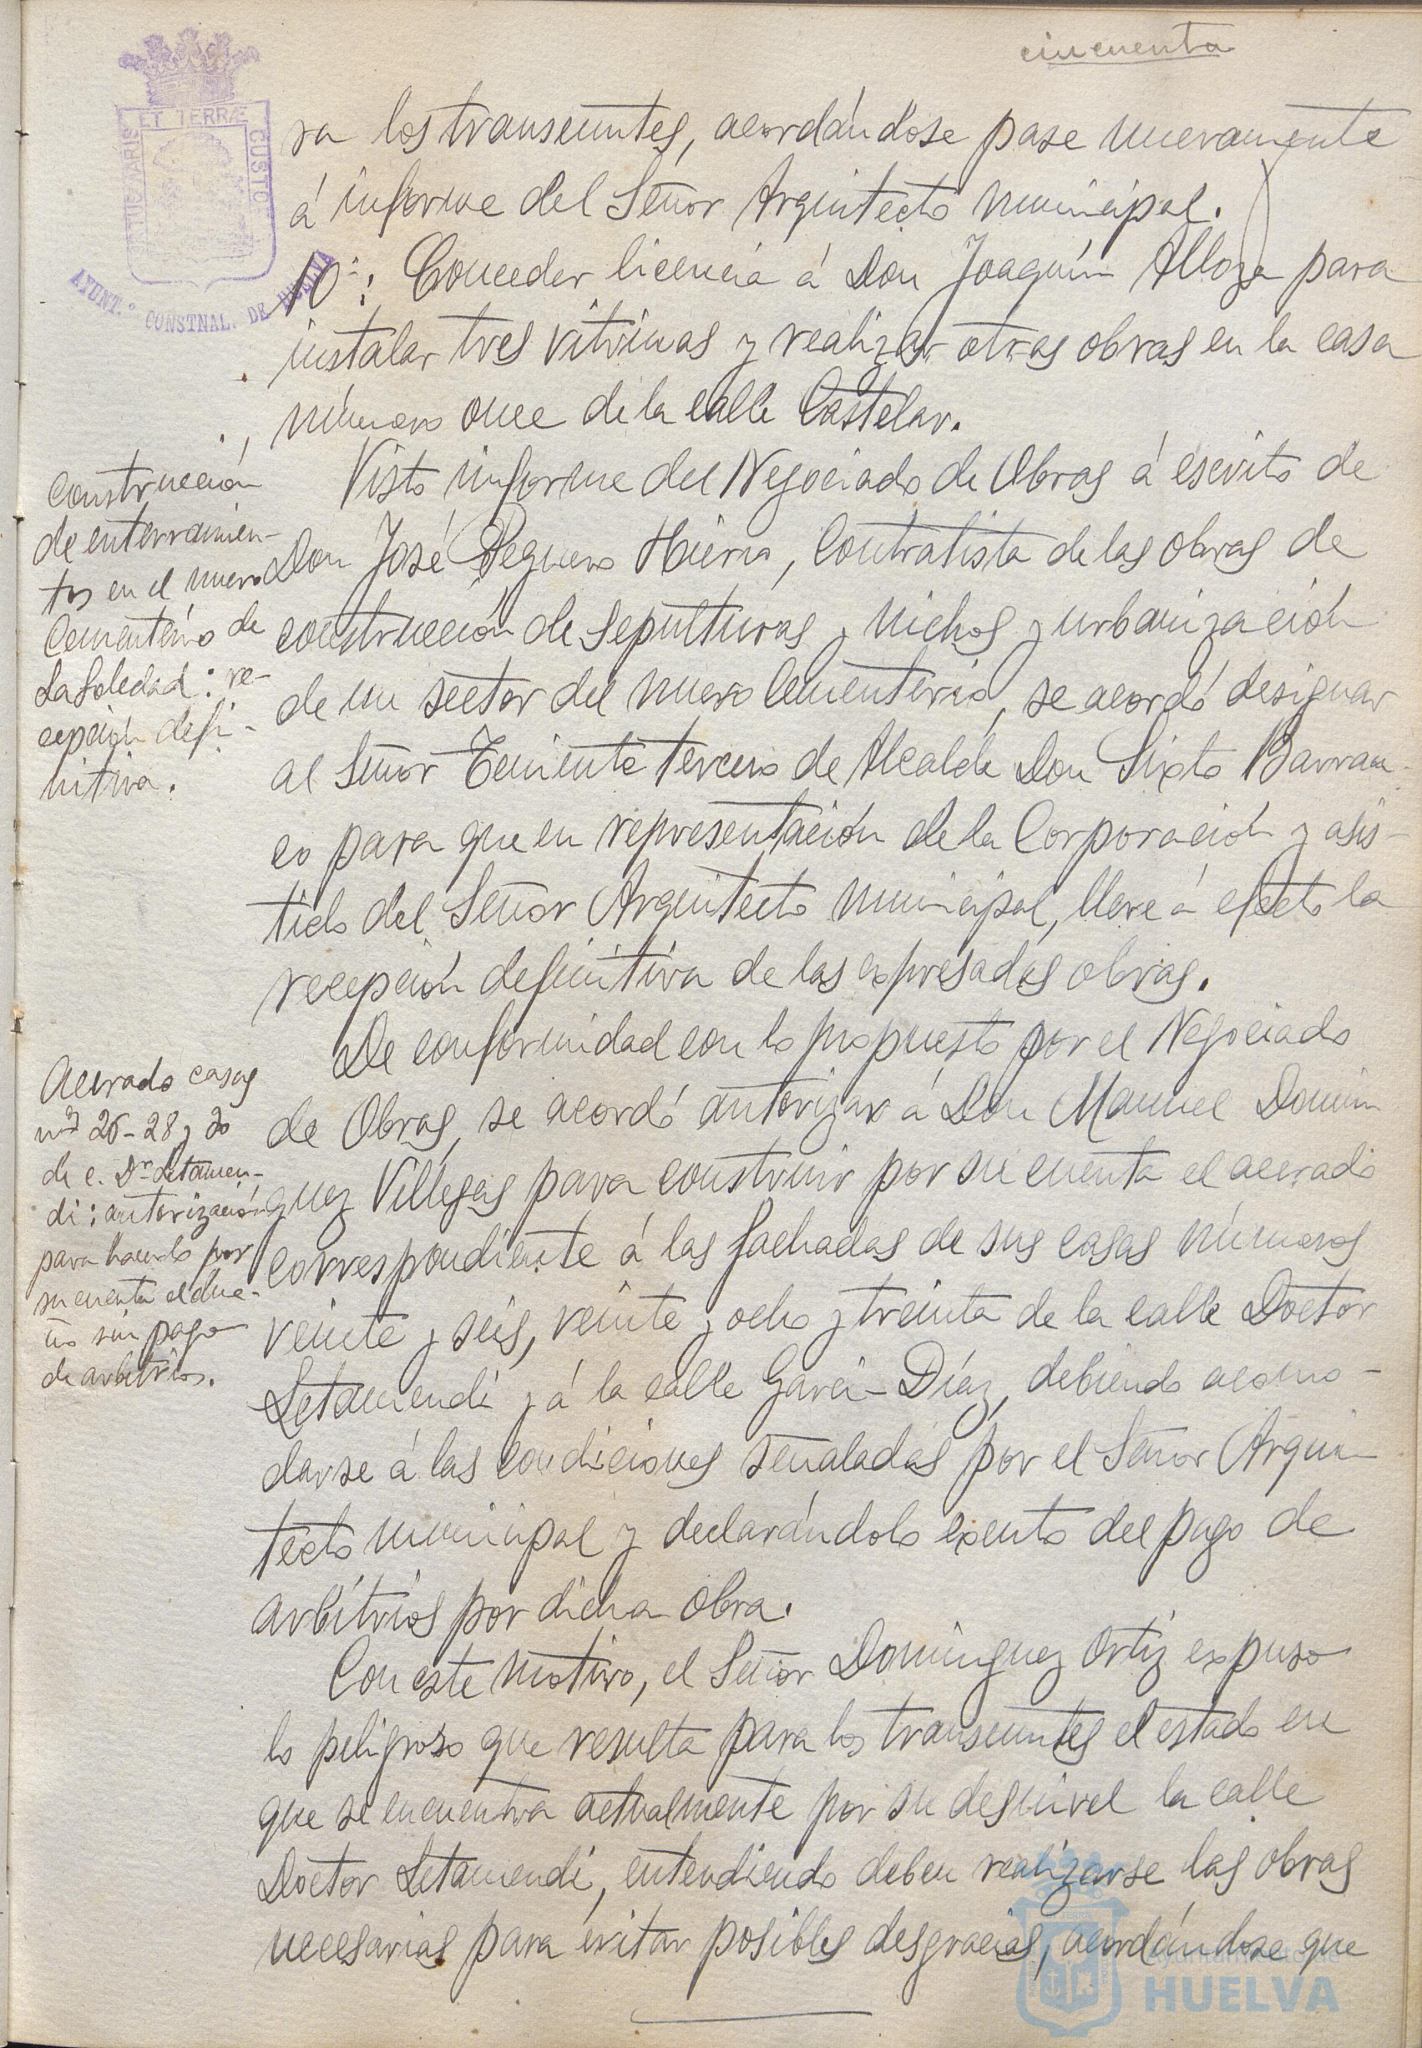 cincuenta
PORTUS MARIS ET TERRÆ CUSTODIA
AYUNT.º CONSTNAL. DE HUELVA
ra los transeuntes, acordándose pase nuevamente
á informe del Señor Arquitecto municipal.
10º: Conceder licencia á Don Joaquín Alloza para
instalar tres vitrinas y realizar otras obras en la casa
número once de la calle Castelar.
Construcción
de enterramien-
tos en el nuevo
Cementerio de
La Soledad: re-
cepción defi-
nitiva.
Visto informe del Negociado de Obras á escrito de
Don José Peguero Hierra, Contratista de las obras de
construcción de sepulturas y nichos y urbanización
de un sector del nuevo Cementerio, se acordó designar
al Señor Teniente tercero de Alcalde Don Sixto Barran-
co para que en representación de la Corporación y asis-
tido del Señor Arquitecto municipal, lleve á efecto la
recepción definitiva de las expresadas obras.
Acerado casas
nos 26-28 y 30
de c. Dr. Letamen-
di: autorización
para hacerlo por
su cuenta el due-
ño sin pago
de arbitrios.
De conformidad con lo propuesto por el Negociado
de Obras, se acordó autorizar á Don Manuel Domin
guez Villegas para construir por su cuenta el acerado
correspondiente á las fachadas de sus casas números
veinte y seis, veinte y ocho y treinta de la calle Doctor
Letamendi y á la calle Garci-Díaz, debiendo acomo-
darse á las condiciones señaladas por el Señor Arqui-
tecto municipal y declarándolo exento del pago de
arbítrios por dicha obra.
Con este motivo, el Señor Domínguez Ortiz expuso
lo peligroso que resulta para los transeuntes el estado en
que se encuentra actualmente por su desnivel la calle
Doctor Letamendi, entendiendo deben realizarse las obras
necesarias para evitar posibles desgracias, acordándose que
Ayuntamiento de
HUELVA